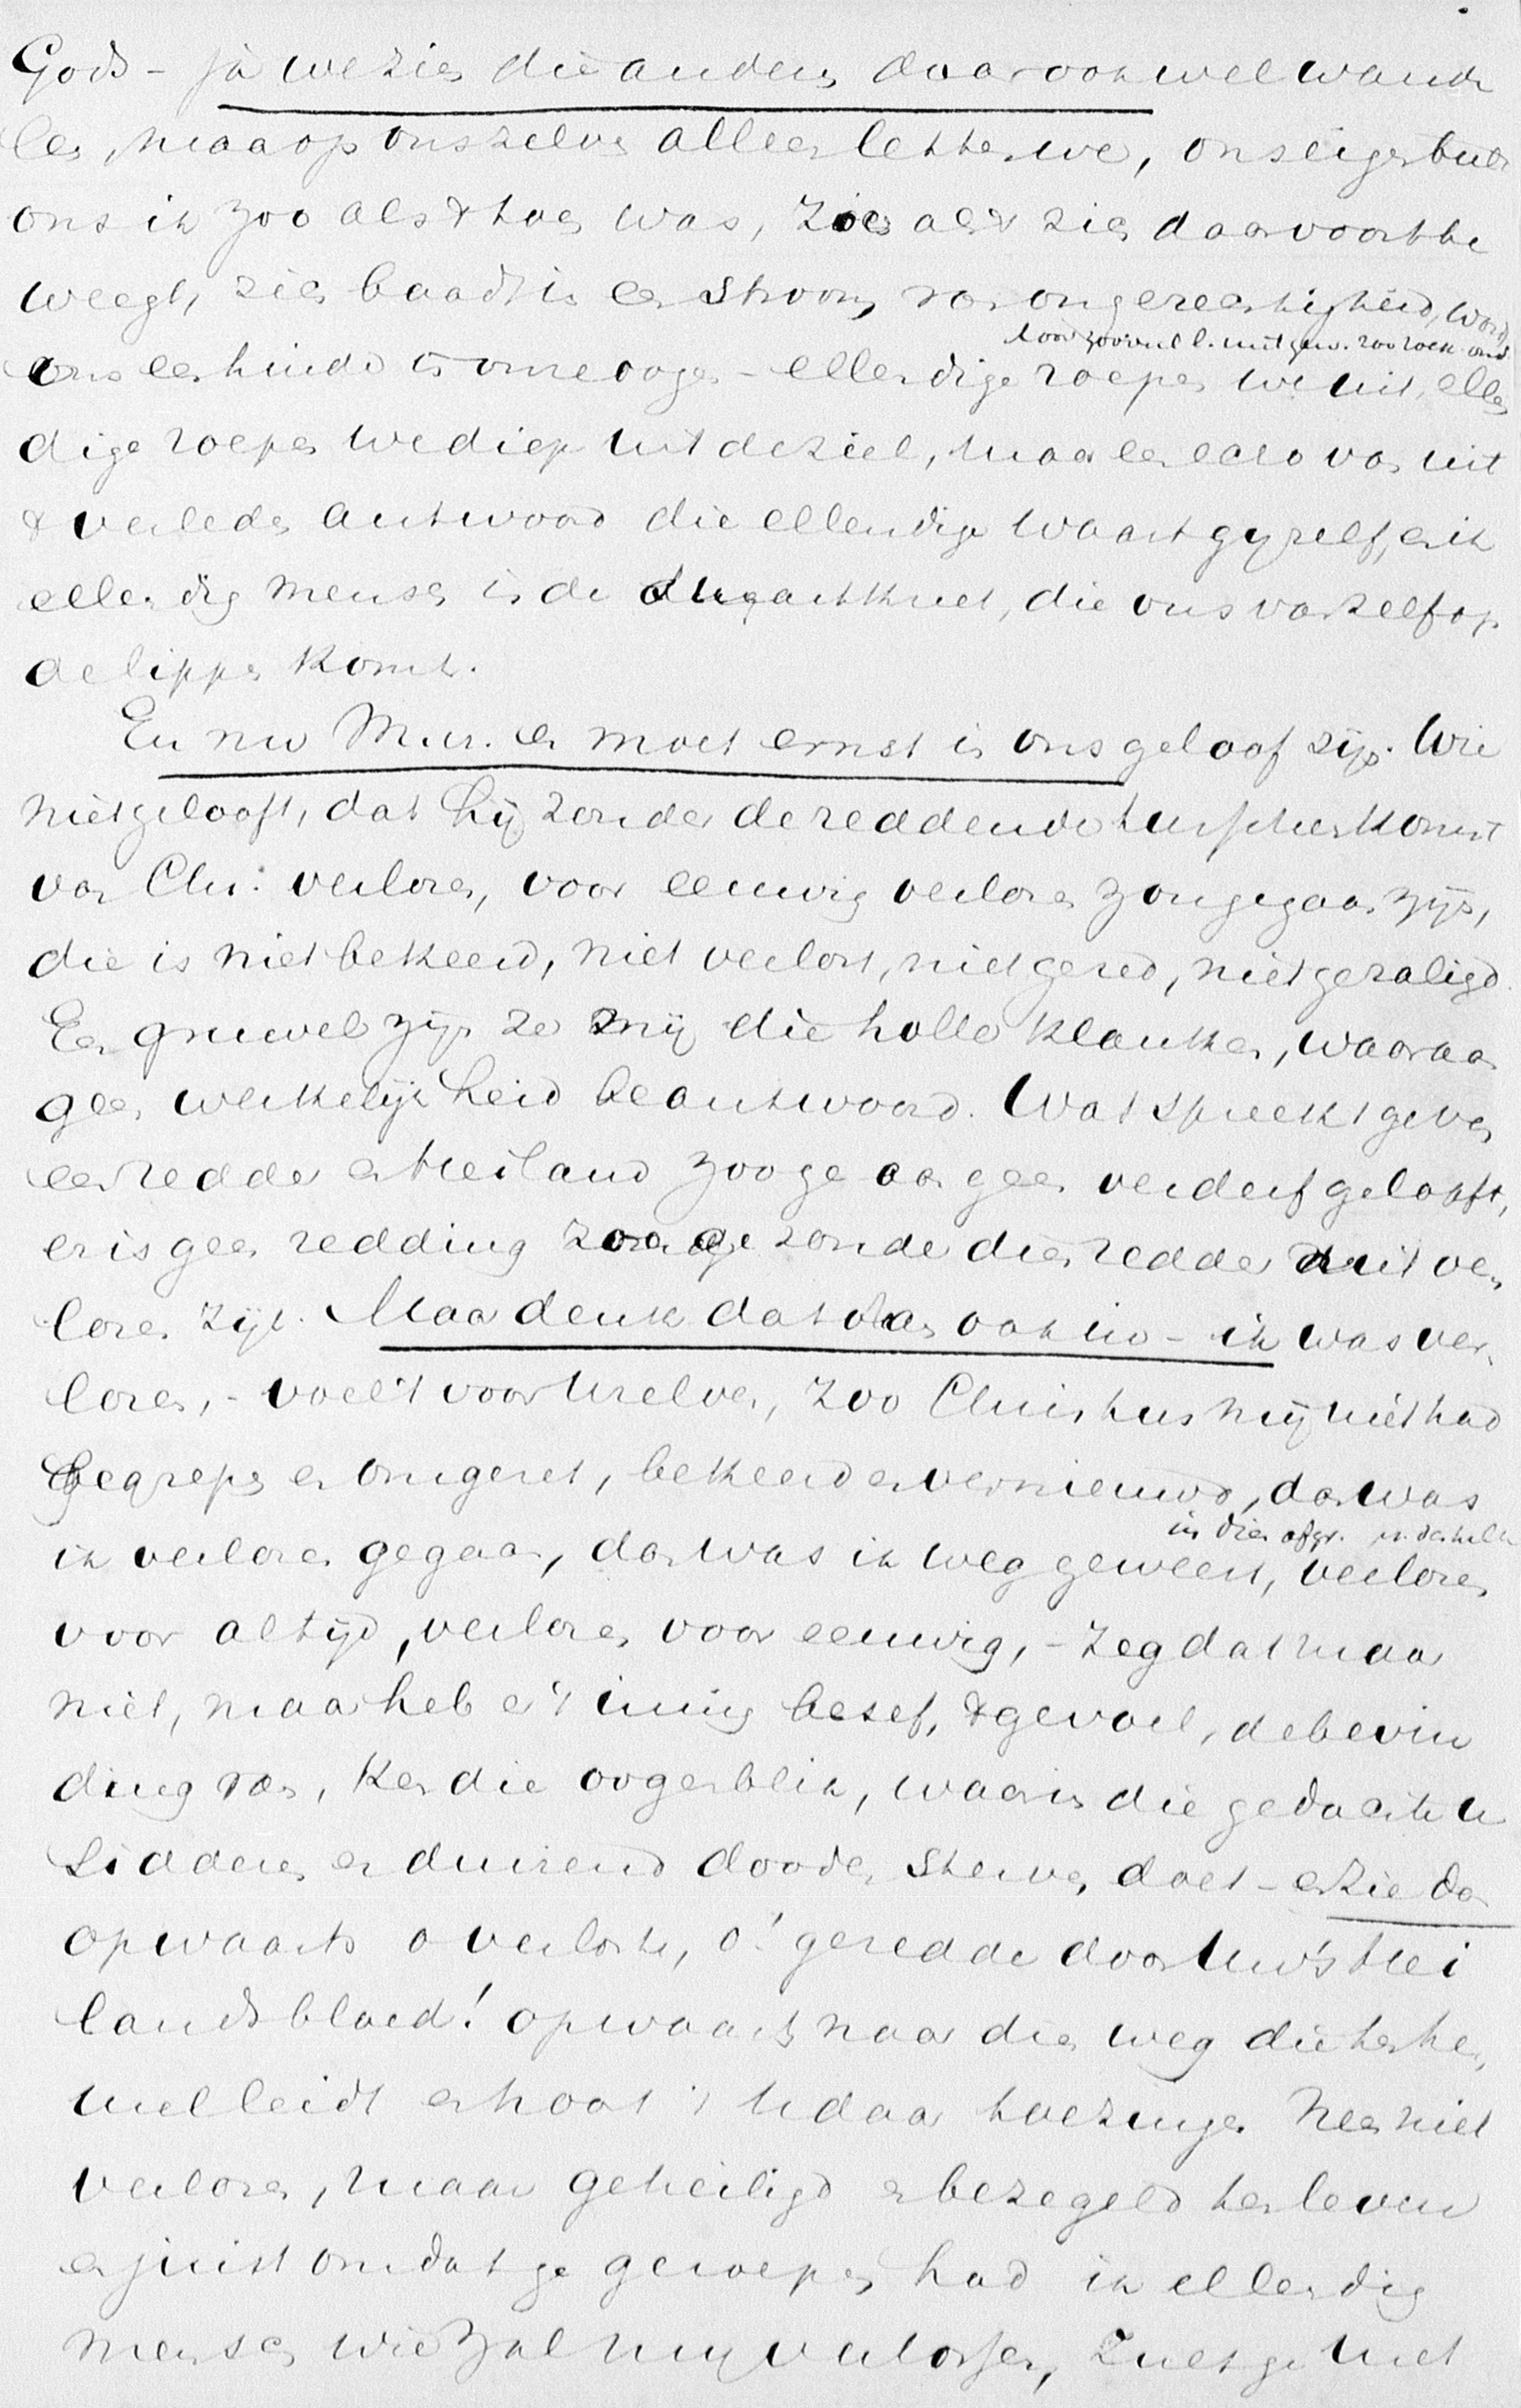 Gods - ja we zien die anderen daar ook wel wande
len, maar op ons zelven alleen letten we, ons eigen beeld
ons ik zoo als 't toen was, zien als 't zich daar voortbe
weegt, zich baadt in een stroom van ongerechtigheid, word
door zooveel l. uit gew. zoo zoek
ons een hinde in onze oogen - ellendige roepen we uit, ellen
dige roepen we diep uit de ziel, maar een echo van uit
't verleden antwoord die ellendige waart gij zelf, en ik
ellendig mensch is de angstkreet, die ons van zelf op
de lippen komt.
En nu M. er moet ernst in ons geloof zijn. Wie
niet gelooft, dat hij zonder de reddende tusschenkomst
van Chr: verloren, voor eeuwig verloren zou gegaan zijn,
die is niet bekeerd, niet verlost, niet gered, niet gezaligd.
Een gruwel zijn ze mij die holle klanken, waaraan
geen werkelijkheid beantwoord. Wat spreekt ge van
een redder en Heiland zoo ge aan geen verderf gelooft,
er is geen redding zoo ge zonder dien redder niet ver
loren zijt. Maar denk dat dan ook in - ik was ver
loren, - voel 't voor u zelven, zoo Christus mij niet had
gegrepen en omgezet, bekeerd en vernieuwd, dan was
in dien afgr. v. de hel
ik verloren gegaan, dan was ik weg geweest, verloren
voor altijd, verloren voor eeuwig, - zeg dat maar
niet, maar heb er 't innig besef, 't gevoel, de bevin
ding van, ken die oogenblik, waarin die gedachte u
sidderen en duizend dooden sterven doet - en zie dan
opwaarts o verloste, o! geredde door Uws Hei
lands bloed! opwaarts naar dien weg die ten he,
mel leidt en hoort 't u daar toezingen Neen niet
verloren, maar geheiligd en bezegeld ten leven
en juist omdat ge geroepen had ik ellendig
mensch wie zal mij verlossen, zult ge met